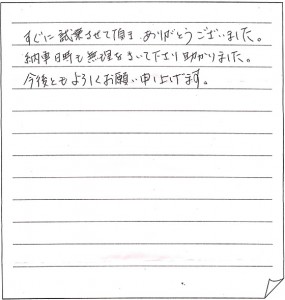 すぐに試乗させて頂き ありがとうございました。
納車日時も無理をきいて下さり助かりました。
今後ともよろしくお願い申し上げます。